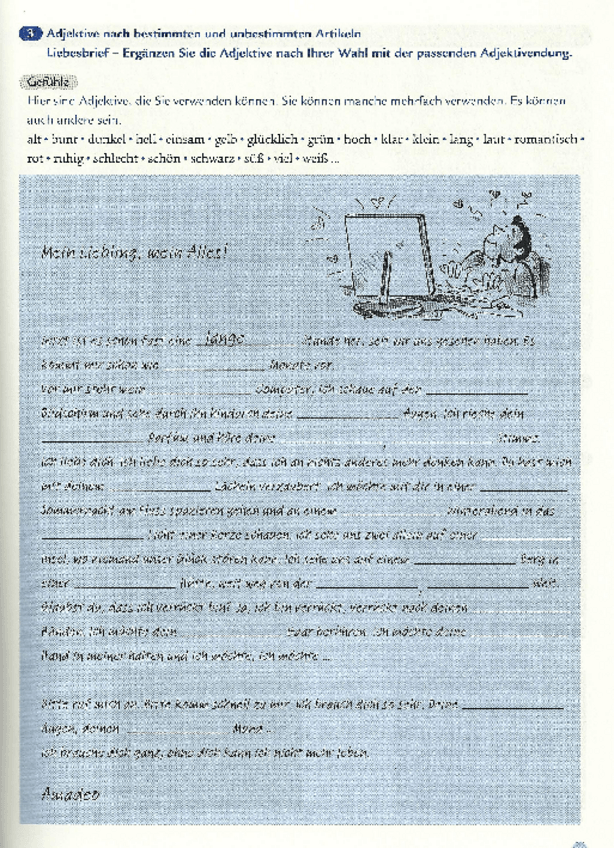 3 Adjektive nach bestimmten und unbestimmten Artikeln
Liebesbrief – Ergänzen Sie die Adjektive nach Ihrer Wahl mit der passenden Adjektivendung.
Gefühle
Hier sind Adjektive, die Sie verwenden können. Sie können manche mehrfach verwenden. Es können
auch andere sein.
alt • bunt • dunkel • hell • einsam • gelb • glücklich • grün • hoch • klar • klein • lang • laut • romantisch •
rot • ruhig • schlecht • schön • schwarz • süß • viel • weiß ...
Mein Liebling, mein Alles!
Jetzt ist es schon fast eine lange Stunde her, seit wir uns gesehen haben. Es
kommt mir schon wie ____ Monate vor.
Vor mir steht mein ____ Computer, ich schaue auf den ____
Bildschirm und sehe durch ihn hindurch deine ____ Augen. Ich rieche dein
____ Parfüm und höre deine ____, ____ Stimme.
Ich liebe dich, ich liebe dich so sehr, dass ich an nichts anderes mehr denken kann. Du hast mich
mit deinem ____ Lächeln verzaubert. Ich möchte mit dir in einer ____
Sommernacht am Fluss spazieren gehen und an einem ____ Winterabend in das
____ Licht einer Kerze schauen. Ich sehe uns zwei allein auf einer ____
Insel, wo niemand unser Glück stören kann. Ich sehe uns auf einem ____ Berg in
einer ____ Hütte, weit weg von der ____, ____ Welt.
Glaubst du, dass ich verrückt bin? Ja, ich bin verrückt, verrückt nach deinen ____
Händen. Ich möchte dein ____ Haar berühren. Ich möchte deine ____
Hand in meiner halten und ich möchte, ich möchte ...
Bitte ruf mich an. Bitte komm schnell zu mir. Ich brauch dich so sehr. Deine ____
Augen, deinen ____ Mund ...
Ich brauche dich ganz, ohne dich kann ich nicht mehr leben.
Amadeo